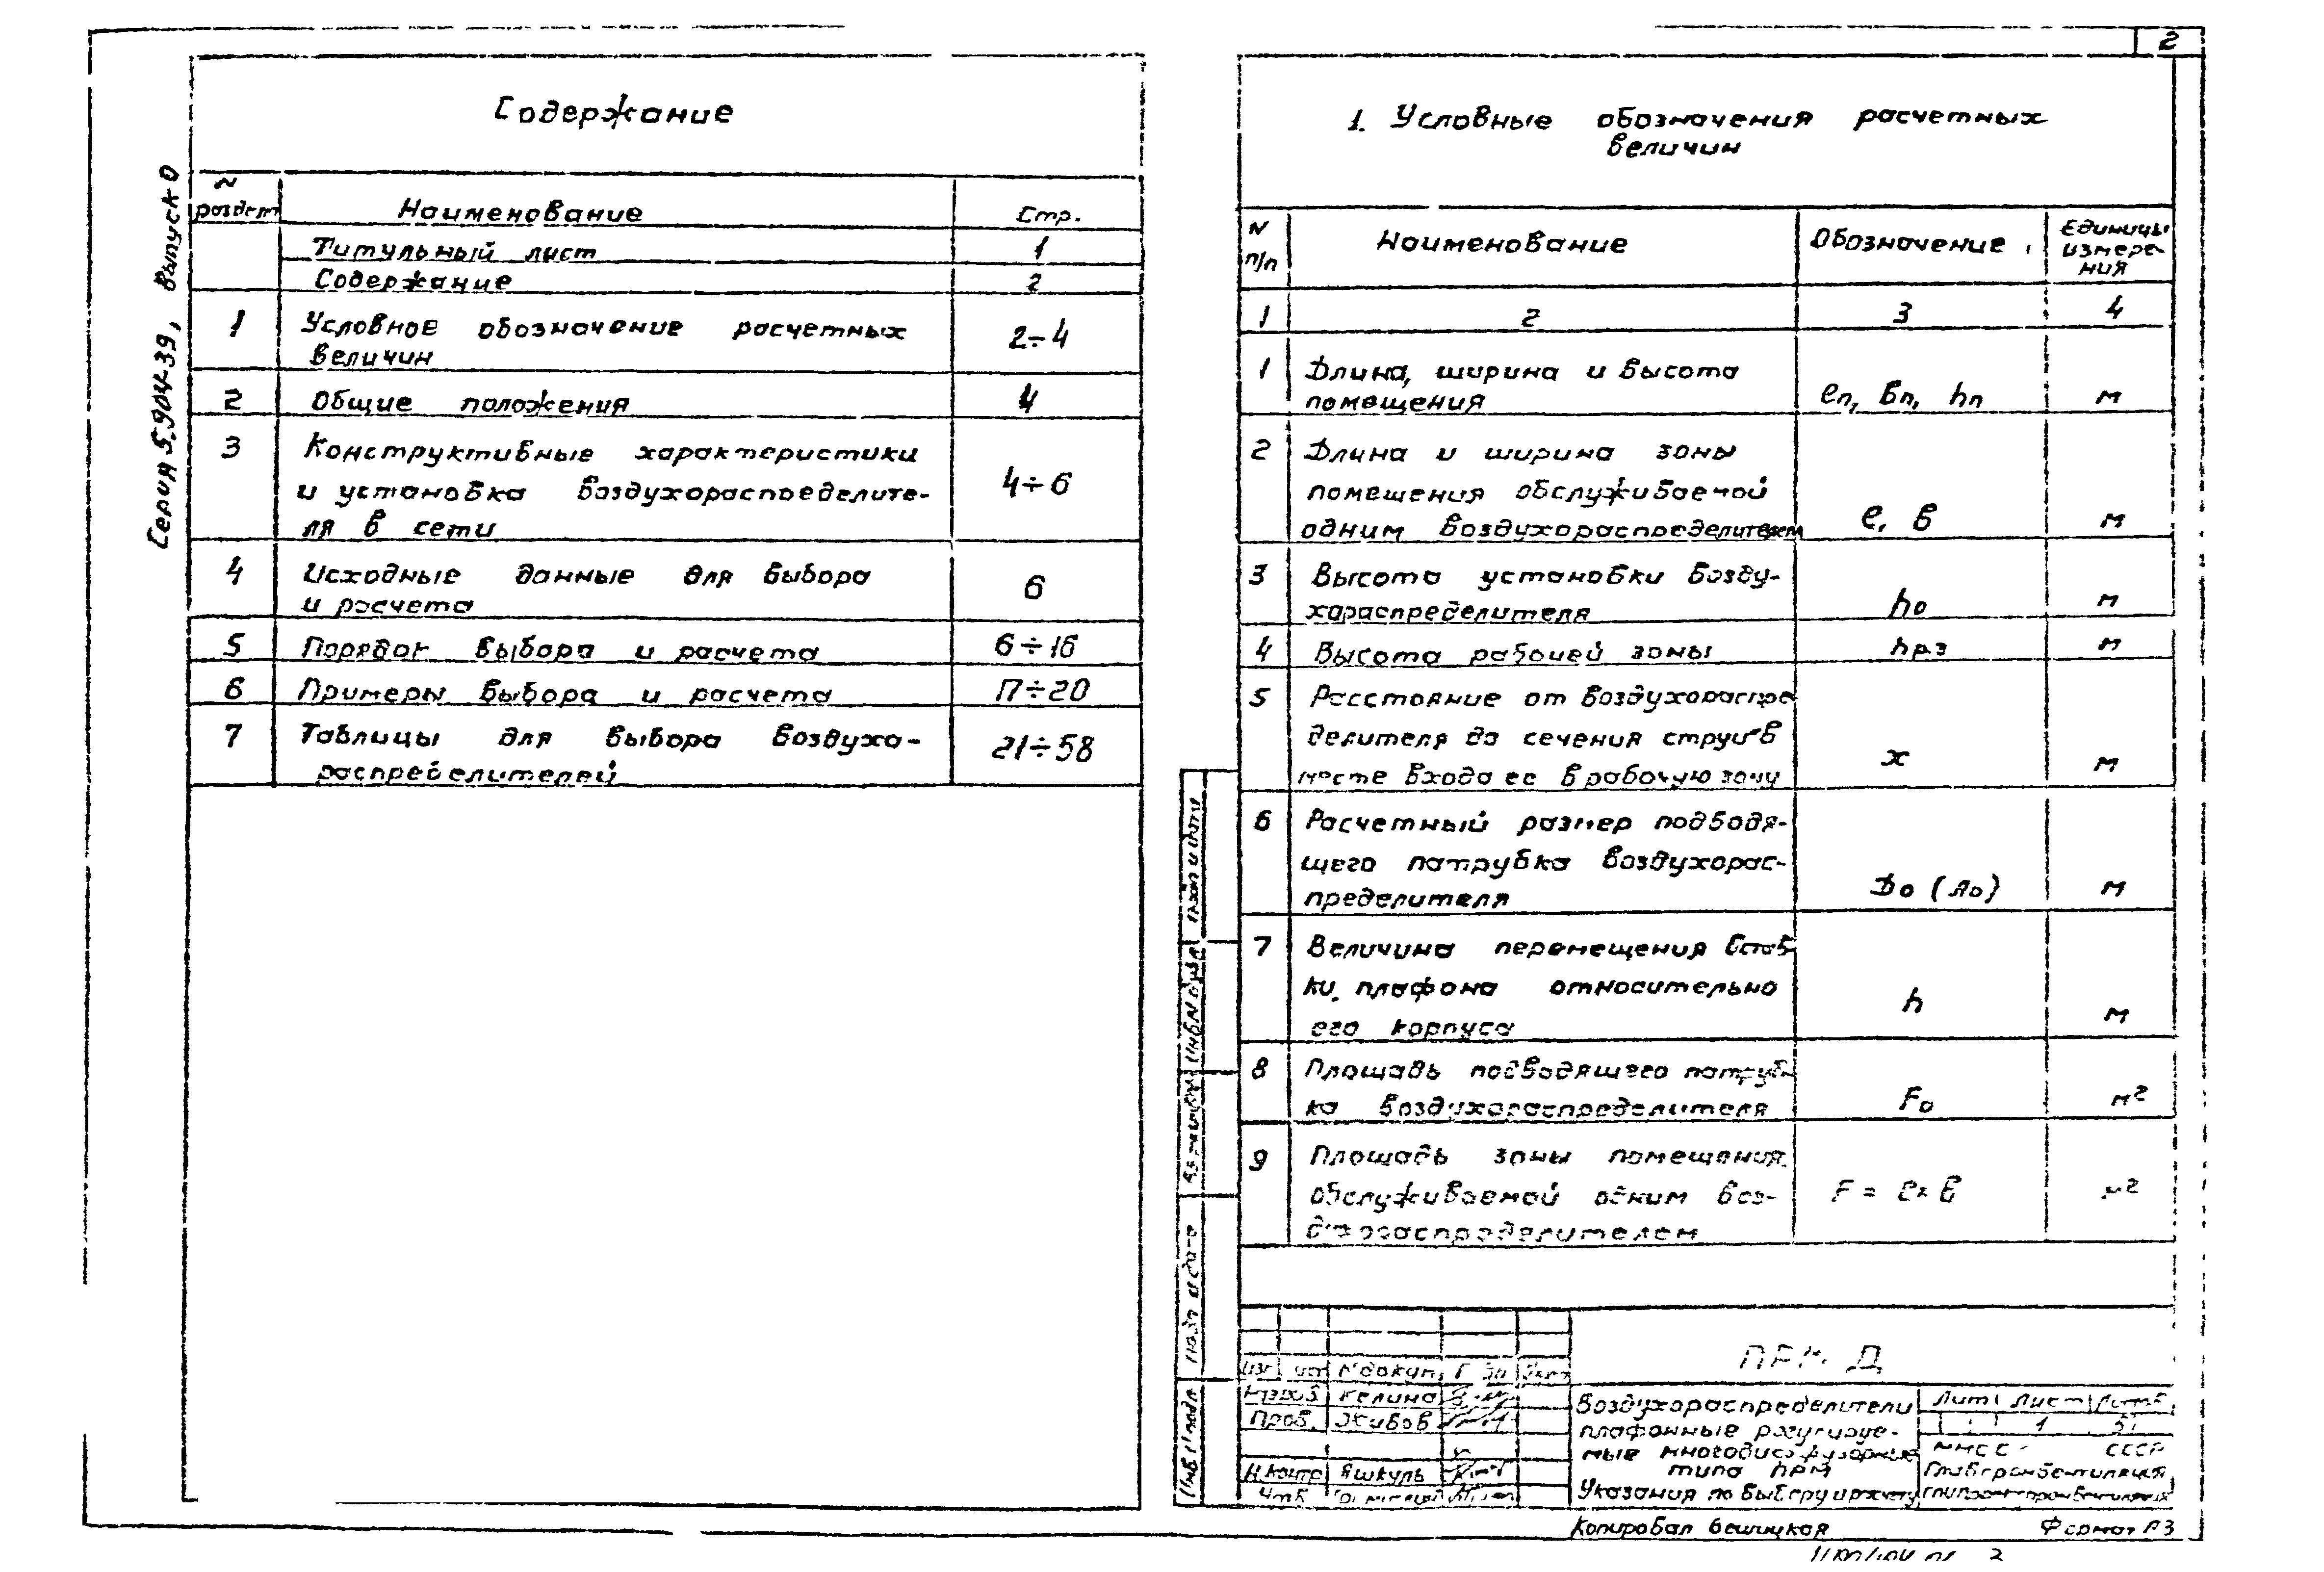 2
Серия 5.904-39, Выпуск 0
Содержание
N раздел Наименование Стр.
Титульный лист 1
Содержание 2
1 Условное обозначение расчетных 2÷4
величин
2 Общие положения 4
3 Конструктивные характеристики
и установка воздухораспределите- 4÷6
ля в сети
4 Исходные данные для выбора 6
и расчета
5 Порядок выбора и расчета 6÷16
6 Примеры выбора и расчета 17÷20
7 Таблицы для выбора воздухо- 21÷58
распределителей
1. Условные обозначения расчетных
величин
N п/п Наименование Обозначение Единицы
измере-
ния
1 2 3 4
1 Длина, ширина и высота
помещения ℓп, вп, hп м
2 Длина и ширина зоны
помещения обслуживаемой
одним воздухораспределителем ℓ, в м
3 Высота установки возду-
хораспределителя hо м
4 Высота рабочей зоны hрз м
5 Расстояние от воздухораспре
делителя до сечения струи в
месте входа ее в рабочую зону х м
6 Расчетный размер подводя-
щего патрубка воздухорас-
пределителя Dо (Ао) м
7 Величина перемещения встав
ки плафона относительно
его корпуса h м
8 Площадь подводящего патруб
ка воздухораспределителя Fо м²
9 Площадь зоны помещения,
обслуживаемой одним воз-
духораспределителем F = ℓ×в м²
Подп и дата
Инв N дубл
Взам инв N
Подп и дата
Инв N подл
Изм Лист N докум. Дата
Разраб Келина
Пров. Живов
Н.контр Яшкуль
Утв.
Воздухораспределители
плафонные регулируе-
мые многодиффузорные
типа ПРМ
Указания по выбору и расчету
Лит Лист Листов
1
ММСС СССР
Главпромвентиляция
Копировал
Формат А3
2